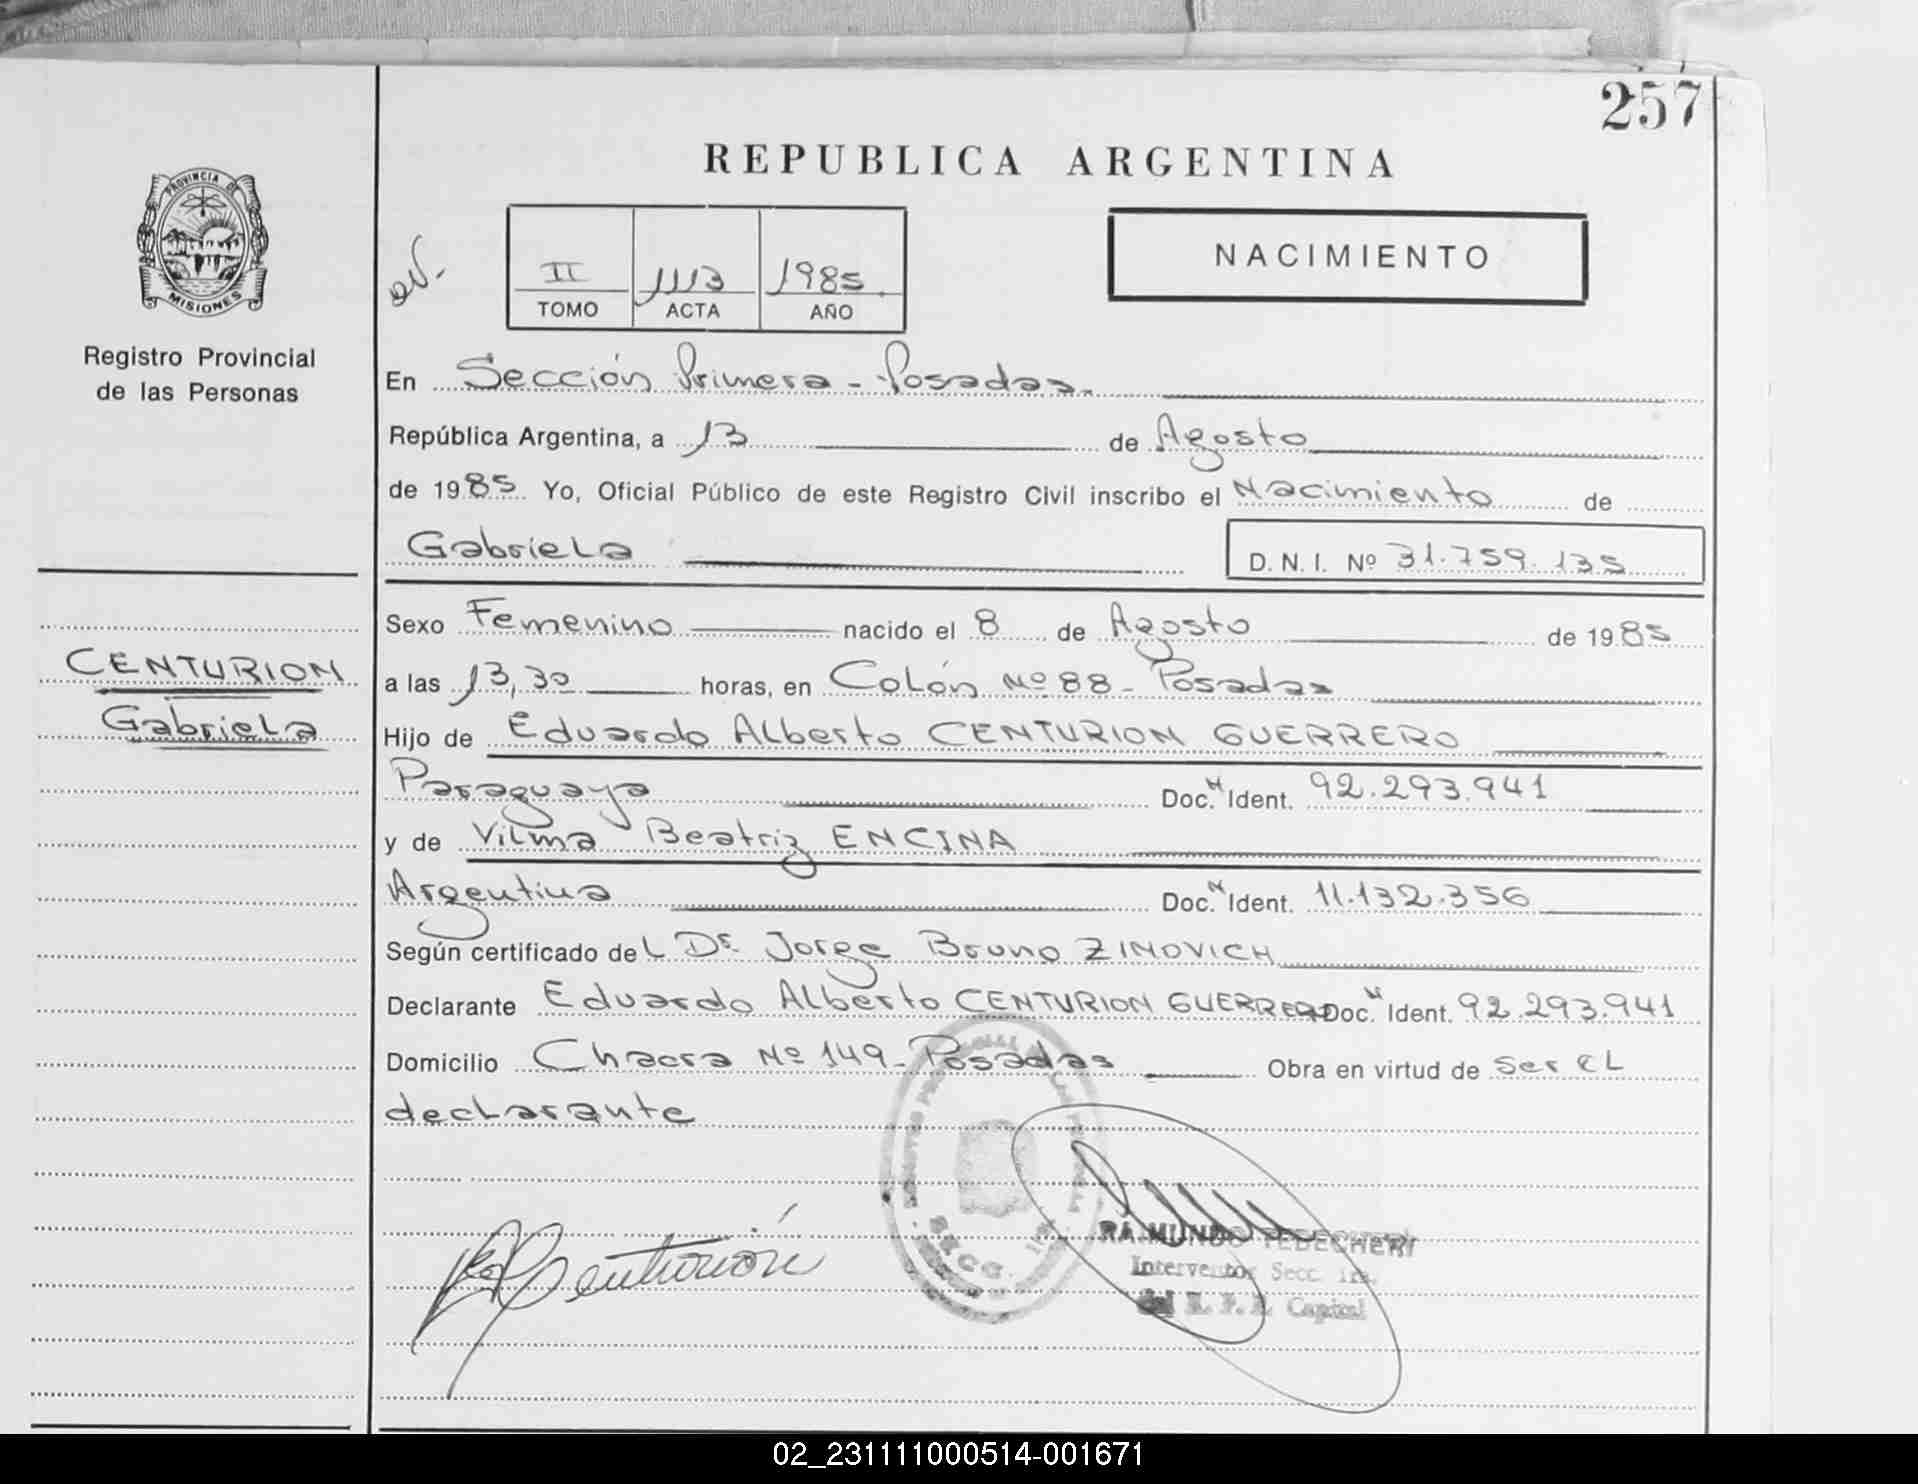 257
REPUBLICA ARGENTINA
PROVINCIA DE
MISIONES
Registro Provincial
de las Personas
II 1113 1985
TOMO ACTA AÑO
NACIMIENTO
En Sección Primera - Posadas.
República Argentina, a 13 de Agosto
de 1985 Yo, Oficial Público de este Registro Civil inscribo el Nacimiento de
Gabriela D. N. I. Nº 31.759.135
Sexo Femenino nacido el 8 de Agosto de 1985
CENTURION
Gabriela
a las 13,30 horas, en Colón Nº 88 - Posadas
Hijo de Eduardo Alberto CENTURION GUERRERO
Paraguaya Doc. Ident. 92.293.941
y de Vilma Beatriz ENCINA
Argentina Doc. Ident. 11.132.356
Según certificado del Dr. Jorge Bruno ZINOVICH
Declarante Eduardo Alberto CENTURION GUERRERO Doc. Ident. 92.293.941
Domicilio Chacra Nº 149 - Posadas Obra en virtud de ser el
declarante
Centurión
RAIMUNDO TEDECHERI
Interventor Secc. 1ra.
del R. P. P. Capital
SECC. 1ª
02_231111000514-001671